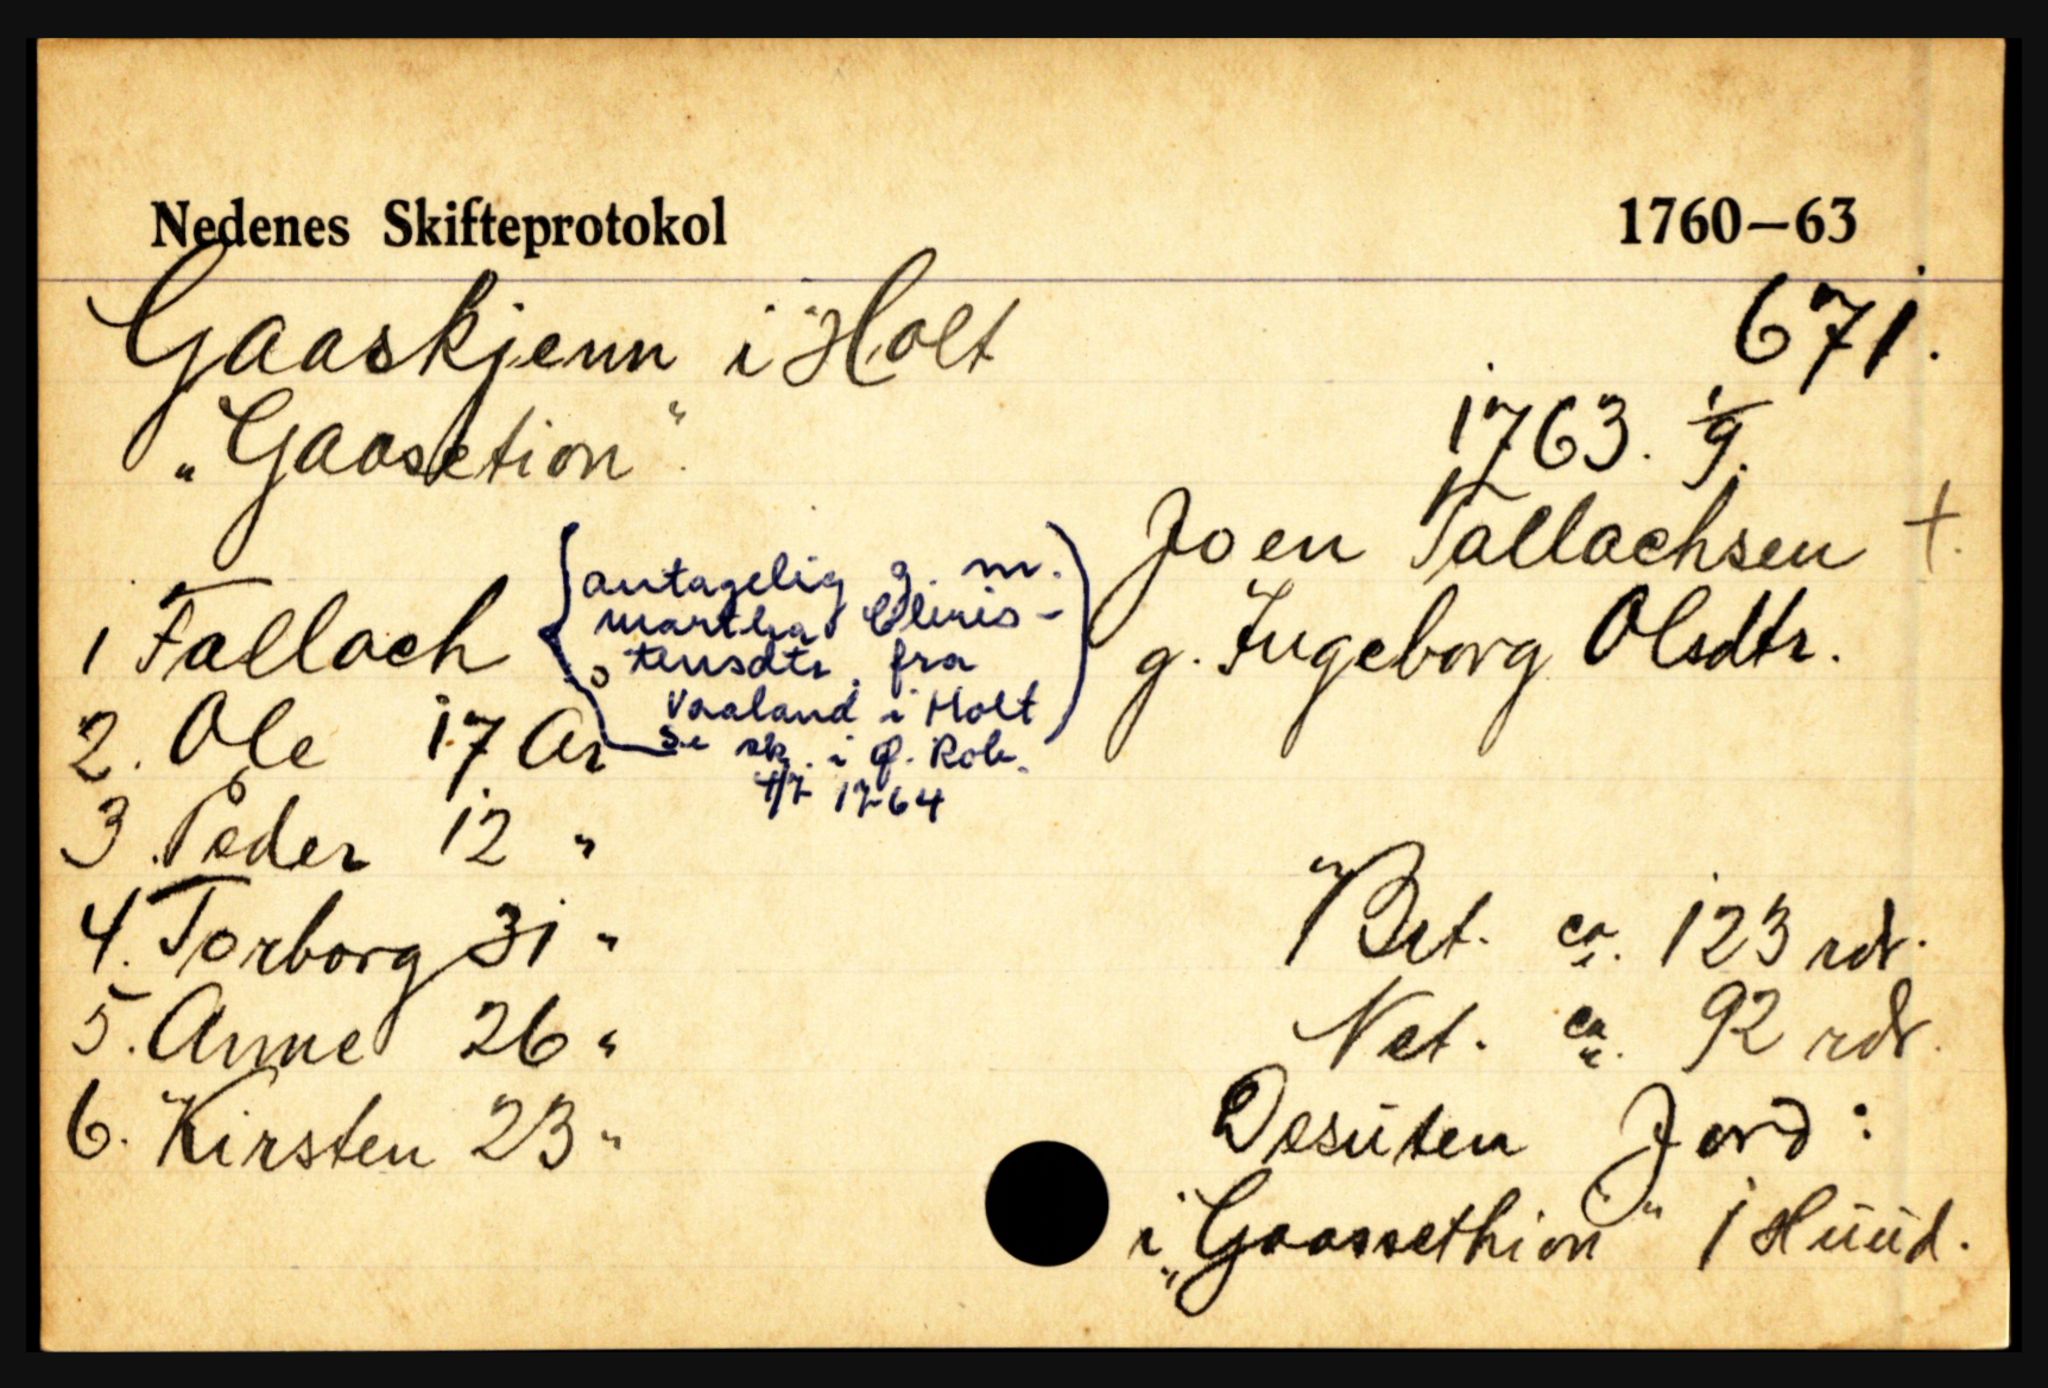 Nedenes Skifteprotokol 1760–63
Gaaskjenn i Holt
671.
„Gaasetion“
1763. 1/9.
Joen Tallachsen †.
g. Ingeborg Olsdtr.
1 Tallach
{antagelig g. m.
Martha Chris-
tensdtr. fra
Vaaland i Holt
se sk. i Q. Rok.
4/7 1764
2. Ole 17 År
3. Peder 12 "
4. Torborg 31 "
5. Anne 26 "
6. Kirsten 23 "
Brt. ca. 123 rdr.
Net. ca. 92 rdr.
Desuten Jord:
i „Gaassethion“ 1 Huud.